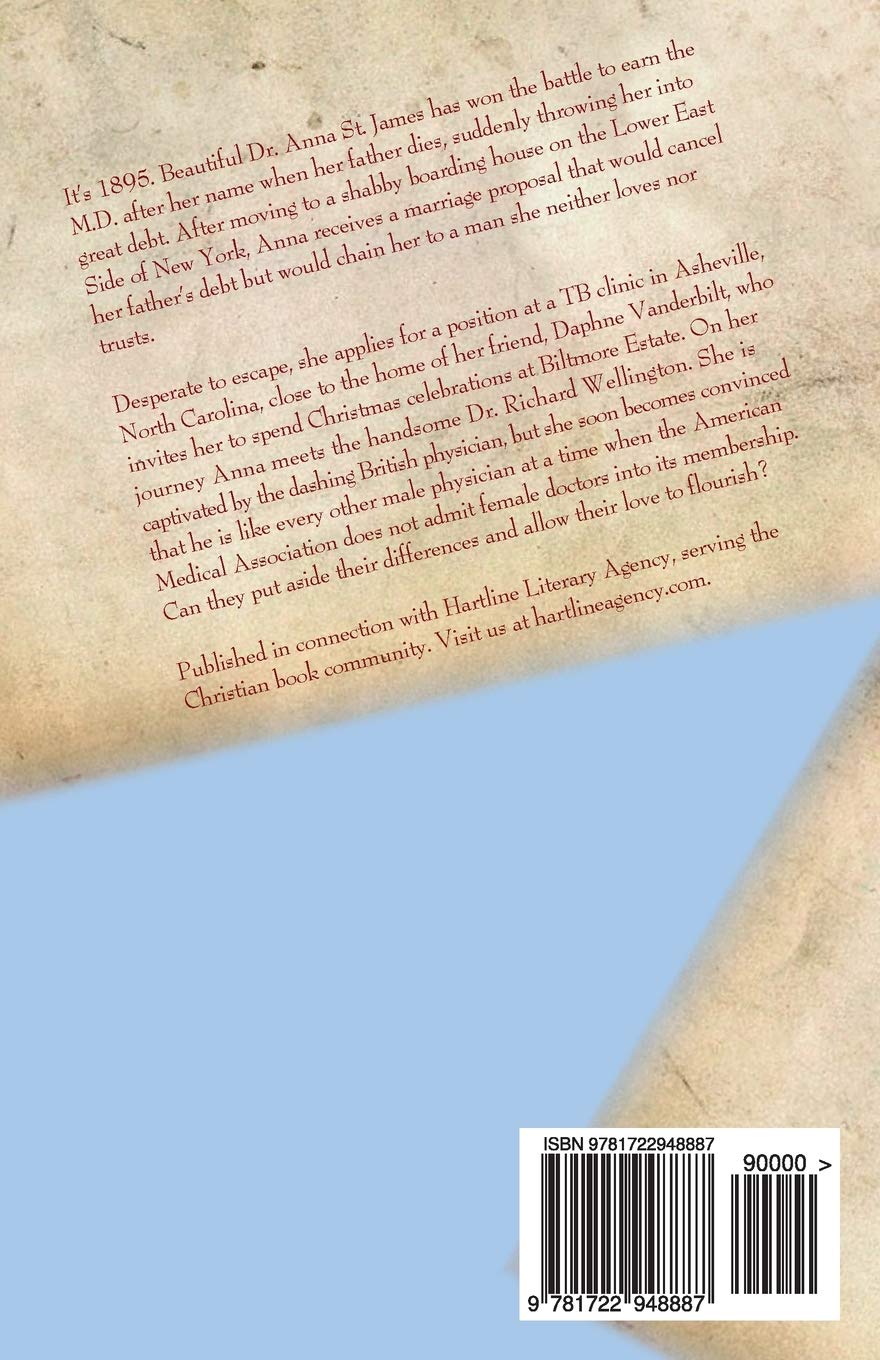 It's 1895. Beautiful Dr. Anna St. James has won the battle to earn the
M.D. after her name when her father dies, suddenly throwing her into
great debt. After moving to a shabby boarding house on the Lower East
Side of New York, Anna receives a marriage proposal that would cancel
her father's debt but would chain her to a man she neither loves nor
trusts.
Desperate to escape, she applies for a position at a TB clinic in Asheville,
North Carolina, close to the home of her friend, Daphne Vanderbilt, who
invites her to spend Christmas celebrations at Biltmore Estate. On her
journey Anna meets the handsome Dr. Richard Wellington. She is
captivated by the dashing British physician, but she soon becomes convinced
that he is like every other male physician at a time when the American
Medical Association does not admit female doctors into its membership.
Can they put aside their differences and allow their love to flourish?
Published in connection with Hartline Literary Agency, serving the
Christian book community. Visit us at hartlineagency.com.
ISBN 9781722948887
90000 >
9 781722 948887